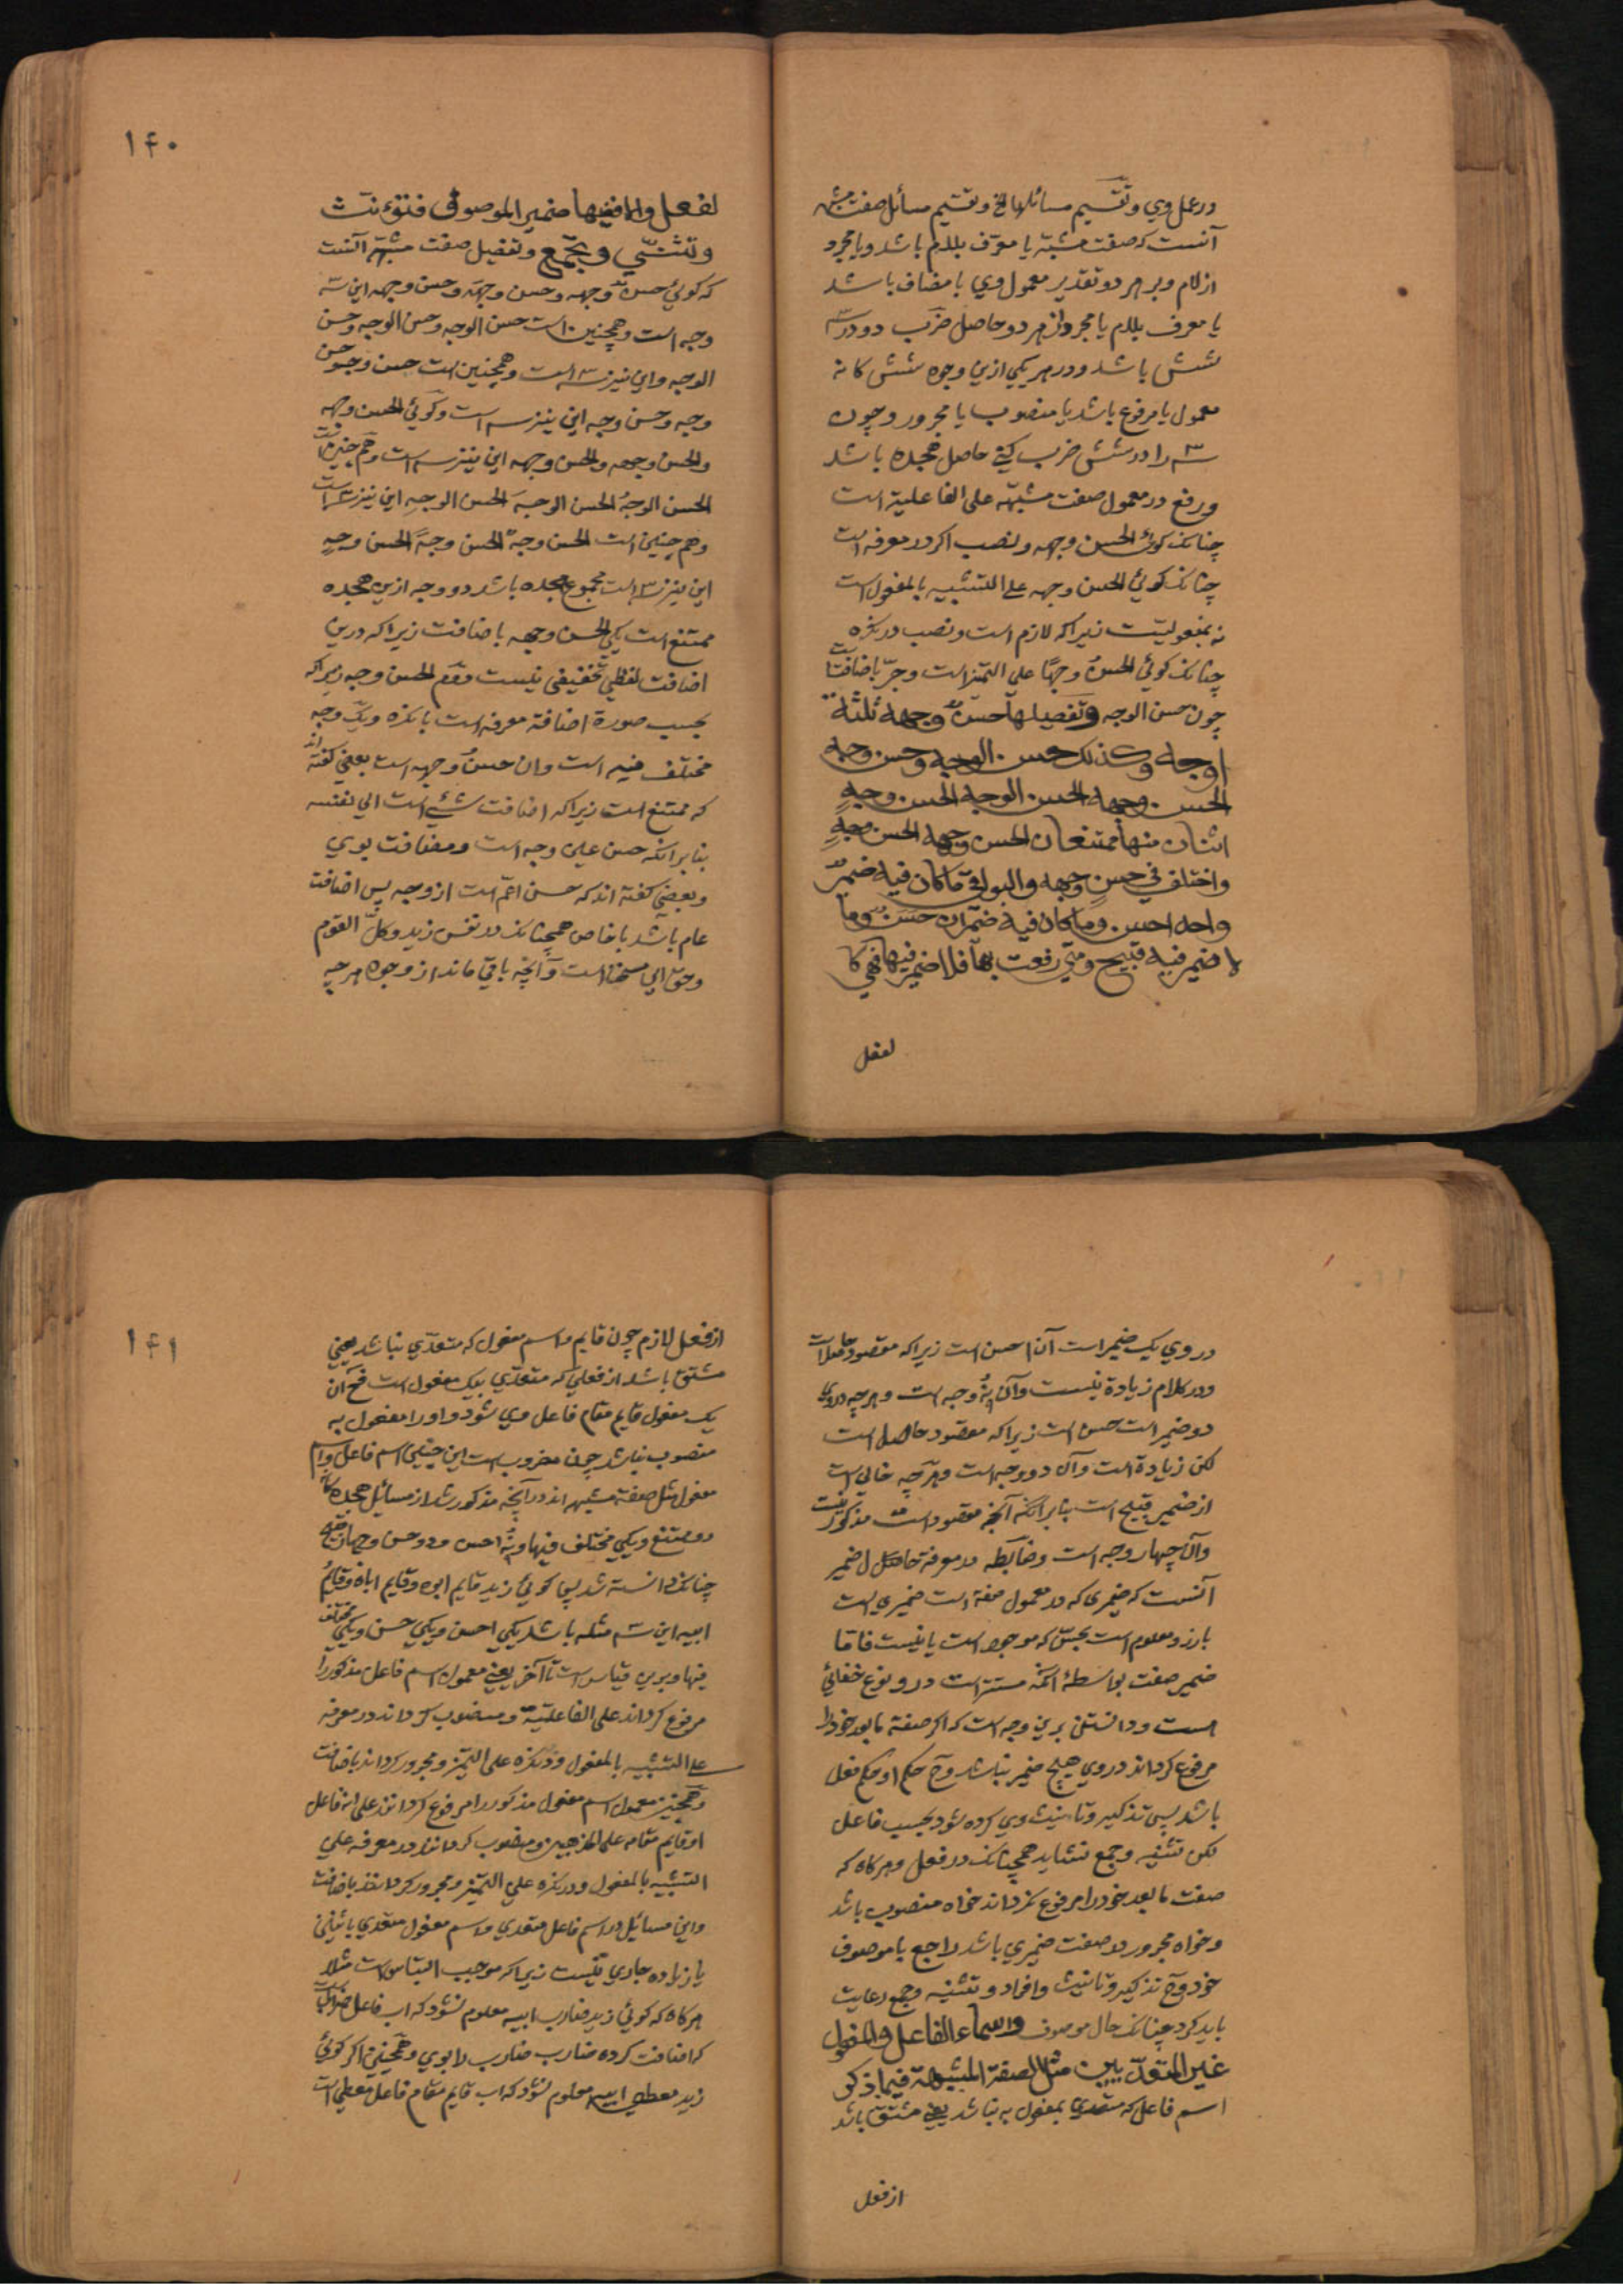 در عمل وي و تقسيم مسائلها الخ و تقسيم مسائل صفت مشبهه
آنست كه صفت مشبّه يا معرّف بلام باشد و يا مجرد
از لام و بر هر دو تقدير معمول وي يا مضاف باشد
يا معرف بلام يا مجرد از هر دو حاصل ضرب دو در سه
شش باشد و در هر يكي ازين وجوه شش كانه
معمول يا مرفوع باشد يا منصوب يا مجرور و چون
سه را در شش ضرب كني حاصل هجده باشد
و رفع در معمول صفت مشبّهه على الفاعلية است
چنانكه كوئي الحسن وجهه و نصب اكر در معرفه است
چنانكه كوئي الحسن وجهه على التشبيه بالمفعول است
نه بمفعوليت زيراكه لازم است و نصب در نكره
چنانكه كوئي الحسن وجهًا على التميز است و جرّ باضافت است
چون حسن الوجه و تفصيلها حسنٌ وجهه ثلثة
اوجه وكذلك حسن الوجه وحسن وجه
الحسن وجهه الحسن الوجه الحسن وجهٍ
اثنان منها ممتنعان الحسن وجهه الحسن وجهٍ
واختلف في حسن وجهه والبواقي ما كان فيه ضميرٌ
واحد احسن وما كان فيه ضميران حسنٌ وما
لا ضمير فيه قبيح ومتى رفعت بها فلا ضمير فيها فهي كا
لفعل
۱۴۰
لفعل والا ففيها ضمير الموصوف فتؤنث
وتثنّي وتجمع و تفصيل صفت مشبّهه آنست
كه كوئي حسنٌ وجهه و حسن وجهَه و حسن وجهه اين سه
وجه است و همچنين است حسن الوجه و حسن الوجه و حسن
الوجه و اين نيز سه است و همچنين است حسن وجهٌ و حسن
وجه و حسن وجه اين نيز سه است و كوئي الحسن وجهه
والحسن وجهه والحسن وجهه اين نيز سه است و هم چنين است
الحسن الوجهُ الحسن الوجهَ الحسن الوجهِ اين نيز سه است
و هم چنين است الحسن وجهٌ الحسن وجهًا الحسن وجهٍ
اين نيز سه است مجموع هجده باشد دو وجه ازين هجده
ممتنع است يكي الحسن وجهه باضافت زيراكه درين
اضافت لفظي تخفيفي نيست دوّم الحسن وجه زيراكه
بحسب صورة اضافة معرفه است بانكره و يك وجه
مختلف فيه است و ان حسنُ وجهه است بعضي كفته اند
كه ممتنع است زيراكه اضافت شئ است الى نفسه
بنابرانكه حسن عين وجه است و مضافت بوي
و بعضي كفته اند كه حسن اعمّ است از وجه پس اضافت
عام باشد با خاص همچنانكه در نفس زيد و كلّ القوم
و حق اين است و آنچه باقي ماند از وجوه هر چه
در وي يك ضمير است آن احسن است زيراكه مقصود حاصل است
و در كلام زيادة نيست و آن نُه وجه است و هر چه در وي
دو ضمير است حسن است زيراكه مقصود حاصل است
لكن زيادة است و آن دو وجه است و هر چه خالي است
از ضمير قبيح است بنابرانكه آنچه مقصود است مذكور نيست
و آن چهار وجه است و ضابطه در معرفة ضمير
آنست كه ضميرى كه در معمول صفة است ضميري است
بارز و معلوم است بحسّ كه موجود است يا نيست فاما
ضمير صفت بواسطهٔ آنكه مستتر است در و نوع خفائي
است و دانستن برين وجه است كه اكر صفة ما بعد خود را
مرفوع كرداند در وي هيچ ضمير نباشد و حكم او حكم فعل
باشد پس تذكير و تانيث وي كرده شود بحسب فاعل
لكن تثنيه و جمع نشايد همچنانكه در فعل و هر كاه كه
صفت ما بعد خود را مرفوع نكرداند خواه منصوب باشد
و خواه مجرور در صفت ضميري باشد راجع با موصوف
خود و تذكير و تانيث و افراد و تثنيه و جمع رعايت
بايد كرد چنانكه حال موصوف واسماء الفاعل والمفعول
غير المتعدّيين مثل الصفة المشبهة فيما ذكر
اسم فاعل كه متعدي بمفعول به نباشد يعني مشتق باشد
از فعل
۱۴۱
از فعل لازم چون قايم و اسم مفعول كه متعدّي نباشد يعني
مشتق باشد از فعلي كه متعدّي بيك مفعول است آن
يك مفعول قايم مقام فاعل مي شود و او را مفعول به
منصوب نباشد چون مضروب است اين چنين اسم فاعل و اسم
مفعول مثل صفة مشبهه اند در آنچه مذكور شد از مسائل هجده كانه
دو ممتنع و يكي مختلف فيها و نُه احسن و دو حسن و چهار قبيح
چنانكه دانسته شد پس كوئي زيد قايم ابوه و قايم اباه و قايم
ابيه اين سه مثله باشد يكي احسن و يكي حسن و يكي مختلف
فيها و برين قياس است تا آخر يعني معمول اسم فاعل مذكور را
مرفوع كرداند على الفاعلية و منصوب كرداند در معرفه
على التشبيه بالمفعول و در نكره على التميز و مجرور كرداند باضافت
و همچنين معمول اسم مفعول مذكور را مرفوع كردانند على انه فاعل
او قايم مقامه على المذهبين و منصوب كردانند در معرفه على
التشبيه بالمفعول و در نكره على التميز و مجرور كردانند باضافت
و اين مسائل در اسم فاعل متعدي و اسم مفعول متعدي باثنين
يا زياده جاري نيست زيراكه موجب التباس است مثلا
هر كاه كه كوئي زيد ضارب ابيه معلوم نشود كه اب فاعل ضارب است
كه اضافت كرده ضارب ضارب را بوي و همچنين اكر كوئي
زيد معطى ابيه معلوم نشود كه اب قايم مقام فاعل معطى است